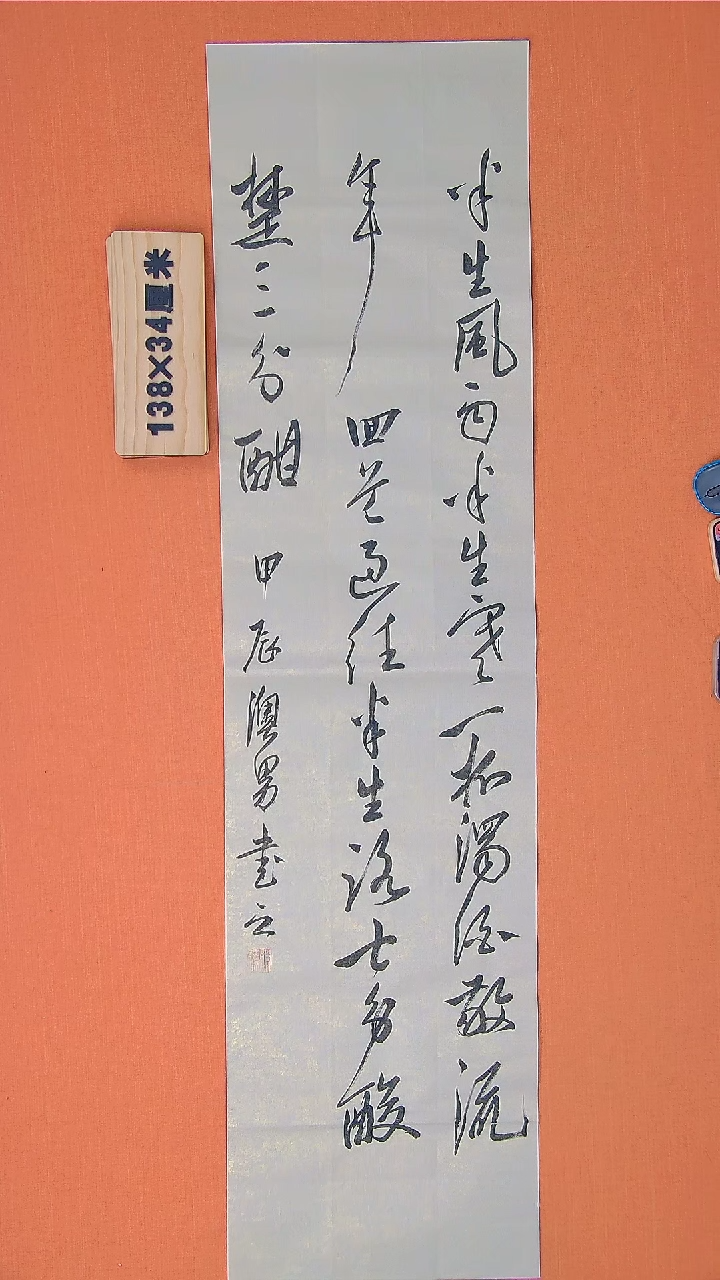 半生风雨半生寒一杯浊酒敬流
年回首过往半生路七分酸
楚三分甜
甲辰澳男书之
138×34厘米